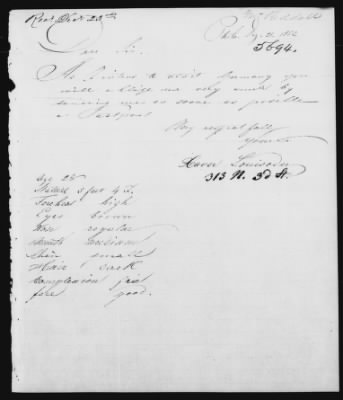 Recd Dec. 23rd
Phila. Dec. 21, 1852
5694.
Dear Sir.
As I intend a visit Germany you
will oblige me very much by
sending me as soon as possible
a Passport
Very respectfully
Yours
Xaver
313 N. 3d St.
Age 28
Stature 5 feet 4 I.
Forehead high
Eyes brown
Nose regular
Mouth
Chin small
Hair dark
Complexion fair
face good.